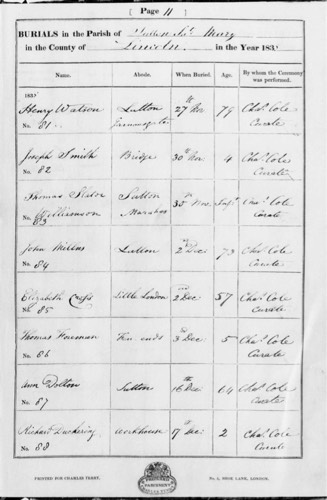 ( Page 11 )
BURIALS in the Parish of Sutton St. Mary
in the County of Lincoln in the Year 183
Name. Abode. When Buried. Age. By whom the Ceremony was performed.
183
Henry Watson Sutton 27th Nov 79 Chas. Cole
No. 81. Curate
Joseph Smith Bridge 30th Nov 4 Chas. Cole
No. 82 Curate
Thomas Sutton 30th Nov Inft. Chas. Cole
Williamson Curate
No. 83
John Sutton 2nd Dec 73 Chas. Cole
No. 84 Curate
Elizabeth Little London 2nd Dec 57 Chas. Cole
No. 85 Curate
Thomas Foreman Fen ends 3 Dec 5 Chas. Cole
No. 86 Curate
Ann Dolton Sutton 16th Dec 64 Chas. Cole
No. 87 Curate
Richard Duckering Workhouse 17th Dec 2 Chas. Cole
No. 88 Curate
PRINTED FOR CHARLES TERRY, No. 6, SHOE LANE, LONDON.